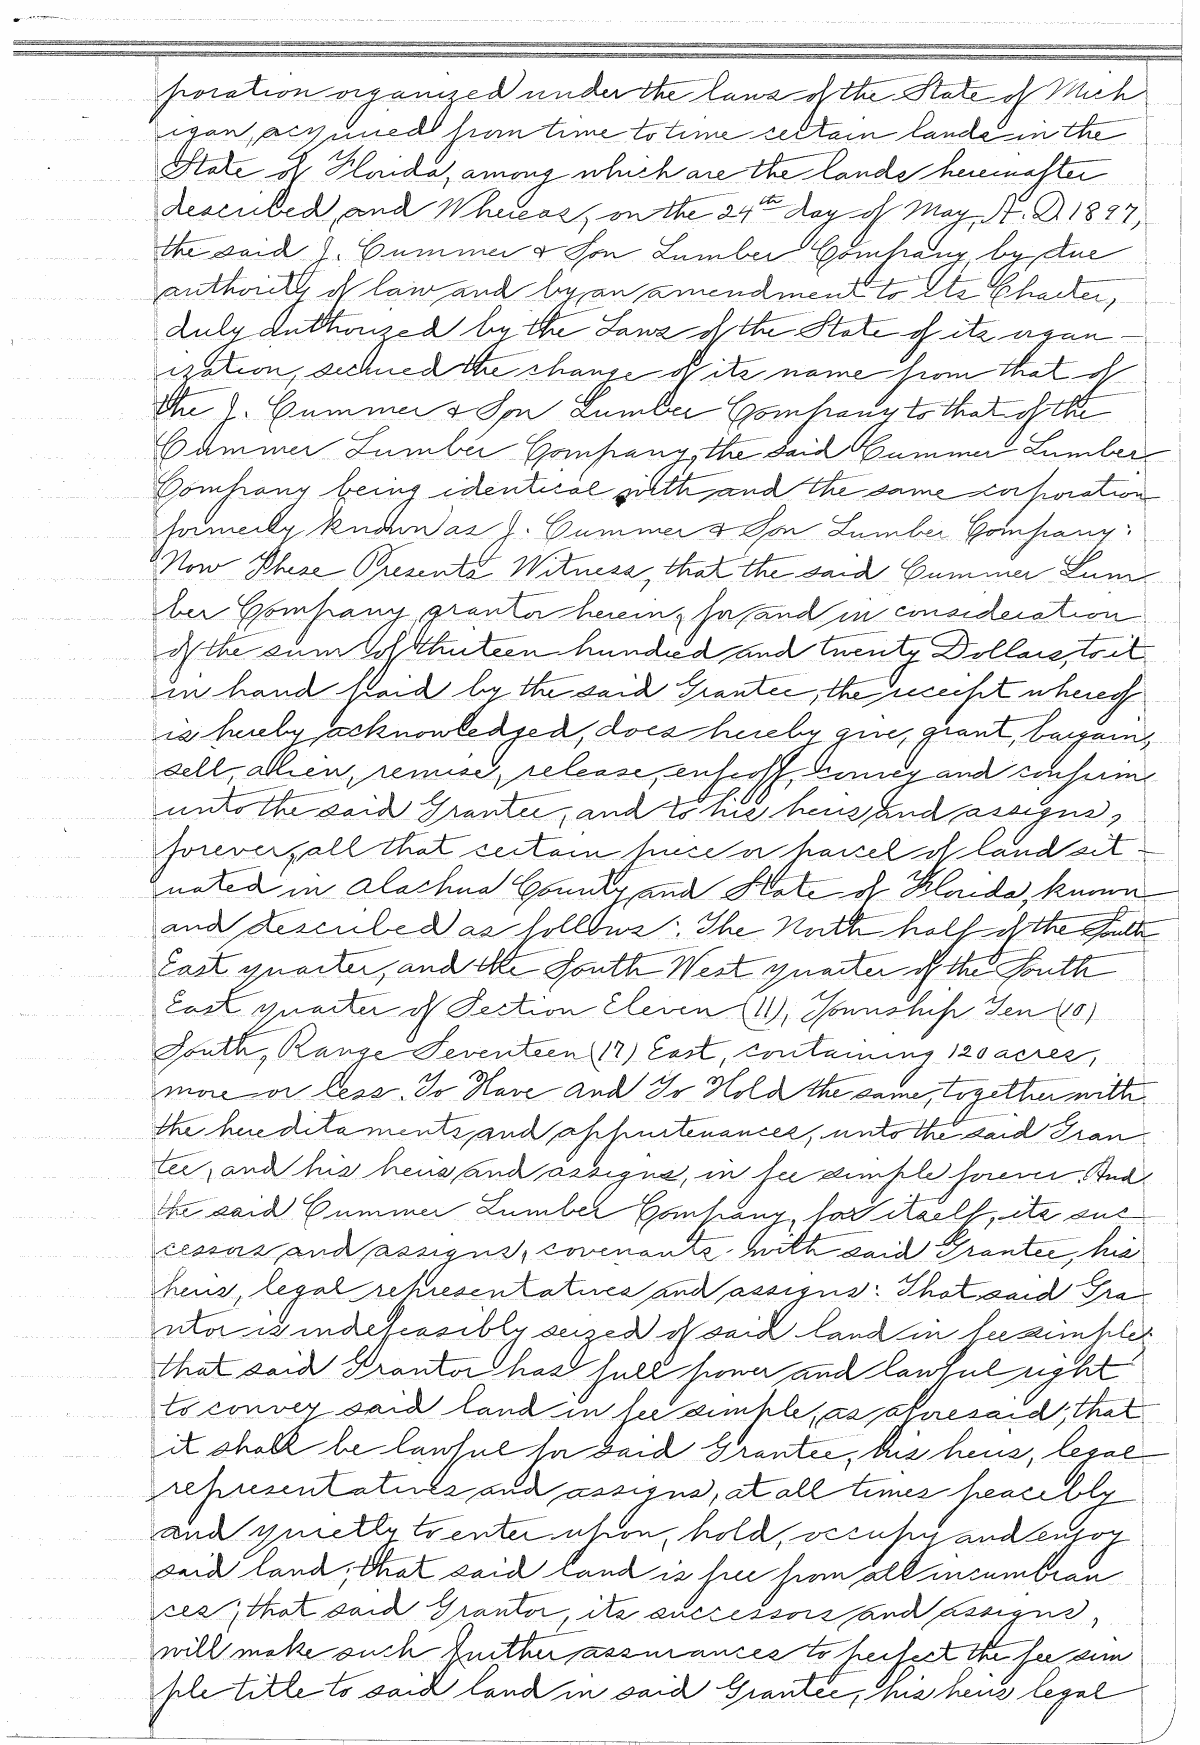 poration organized under the laws of the State of Mich
igan, acquired from time to time certain lands in the
State of Florida, among which are the lands hereinafter
described, and Whereas, on the 24th day of May, A. D. 1897,
the said J. Cummer & Son Lumber Company, by due
authority of law and by an amendment to its Charter,
duly authorized by the Laws of the State of its organ-
ization, secured the change of its name from that of
the J. Cummer & Son Lumber Company to that of the
Cummer Lumber Company, the said Cummer Lumber
Company being identical with and the same corporation
formerly known as J. Cummer & Son Lumber Company:
Now These Presents Witness, that the said Cummer Lum
ber Company, grantor herein, for and in consideration
of the sum of thirteen hundred and twenty Dollars, to it
in hand paid by the said Grantee, the receipt whereof
is hereby acknowledged, does hereby give, grant, bargain,
sell, alien, remise, release, enfeoff, convey and confirm
unto the said Grantee, and to his heirs and assigns,
forever, all that certain piece or parcel of land sit-
uated in Alachua County and State of Florida, known
and described as follows: The North half of the South
East quarter, and the South West quarter of the South
East quarter of Section Eleven (11), Township Ten (10)
South, Range Seventeen (17) East, containing 120 acres,
more or less. To Have and To Hold the same, together with
the hereditaments and appurtenances, unto the said Gran
tee, and his heirs and assigns, in fee simple forever. And
the said Cummer Lumber Company, for itself, its suc
cessors and assigns, covenants with said Grantee, his
heirs, legal representatives and assigns: That said Gra
ntor is indefeasibly seized of said land in fee simple;
that said Grantor has full power and lawful right
to convey said land in fee simple, as aforesaid; that
it shall be lawful for said Grantee, his heirs, legal
representatives and assigns, at all times peacebly
and quietly to enter upon, hold, occupy and enjoy
said land; that said land is free from all incumbran
ces; that said Grantor, its successors and assigns,
will make such further assurances to perfect the fee sim
ple title to said land in said Grantee, his heirs legal